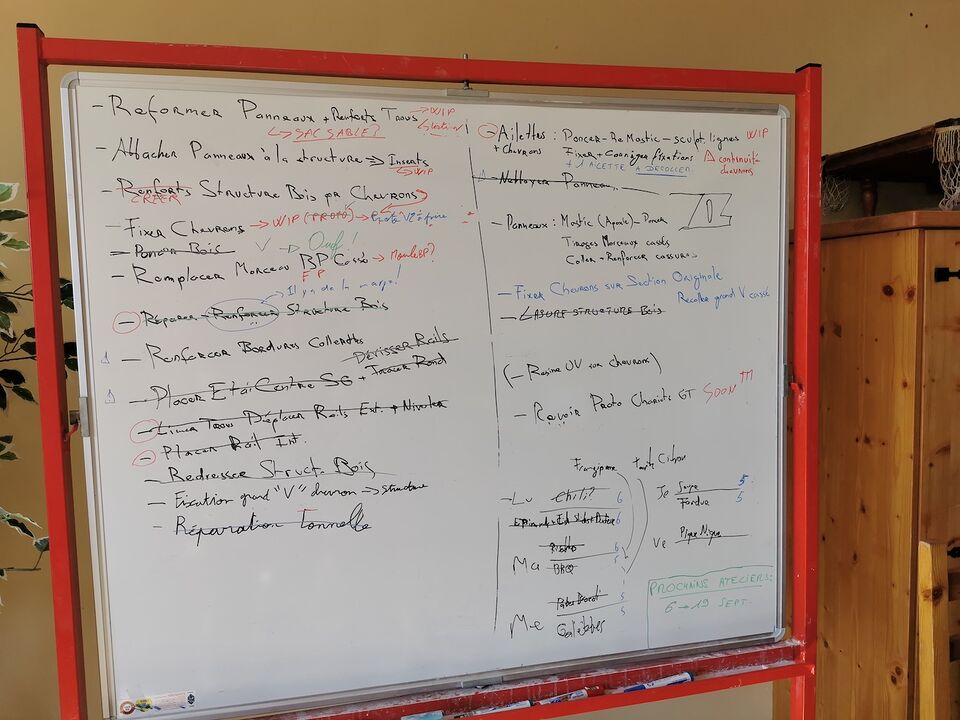 - Reformer Panneaux + Renforts Trous → WIP
↳ SAC SABLE?
- Attacher Panneaux à la structure ⇒ Inserts
↳ WIP
- Renforts Structure Bois par Chevrons
CRÉER
- Fixer Chevrons → WIP (PROTO) →
- Poncer Bois V → Ouf!
- Remplacer Morceau BP Cassé → Moule BP?
FP
Il y a de la marge!
- Réparer - Renforcer Structure Bois
- Renforcer Bordures Collerettes
Dévisser Rails
- Placer Etai Centre SG + Tracer Rond
- Limer Trous Déplacer Rails Ext. + Niveler
- Placer Rail Int.
- Redresser Struct. Bois
- Fixation grand "V" chevron → structure
- Réparation Tonnelle
- Ailettes : Poncer - ReMastic - sculpt. lignes WIP
+ Chevrons Fixer + Corriger fixations Δ continuité chevrons
+ 1 AILETTE A DECOLLER
- Nettoyer Panneau
- Panneaux : Mastic - Poncer
Tirages Morceaux cassés
Coller + Renforcer cassures
- Fixer Chevrons sur Section Originale
Recoller grand V cassé
- LASURE STRUCTURE BOIS
(- Resine UV sur chevrons)
- Revoir Proto Chariots GT SOON !!!
Frangipane tarte Citron
- Lu Chili? 6
6
Ma Risotto 6
BBQ
Me 5
5
Je Soupe 5
Fondue 5
Ve Pique Nique
PROCHAINS ATELIERS:
6 → 19 SEPT.